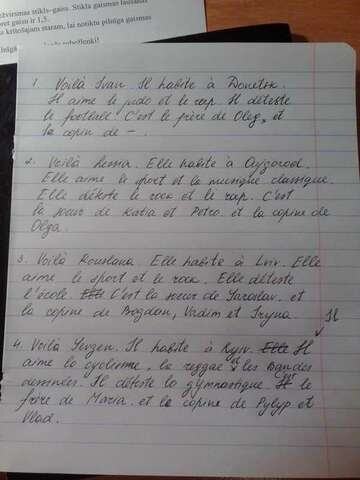 šķērsmas stikls-gaiss. Stikla gaismas laušanas
pret gaisu ir 1,5.
krītošajam staram, lai notiktu pilnīga gaismas
1. Voilà Ivan. Il habite à Donetsk.
Il aime le judo et le rap. Il déteste
le football. C'est le frère de Oleg, et
la copin de – .
2. Voilà Lessia. Elle habite à Oujgorod.
Elle aime le sport et le musique classique.
Elle déteste le rock et le rap. C'est
la soeur de Katia et Petro. et la copine de
Olga.
3. Voilà Rouslana. Elle habite à Lviv. Elle
aime le sport et le rock. Elle déteste
l'école. Elle C'est la soeur de Yaroslav. et
la copine de Bogdan, Vadim et Iryna.
Il
4. Voilà Yevgen. Il habite à Kyiv. Elle Il
aime la cyclisme, la reggae et les Bandes
dessinées. Il déteste la gymnastique. Il est le
frère de Maria. et le copine de Pylyp et
Vlad.